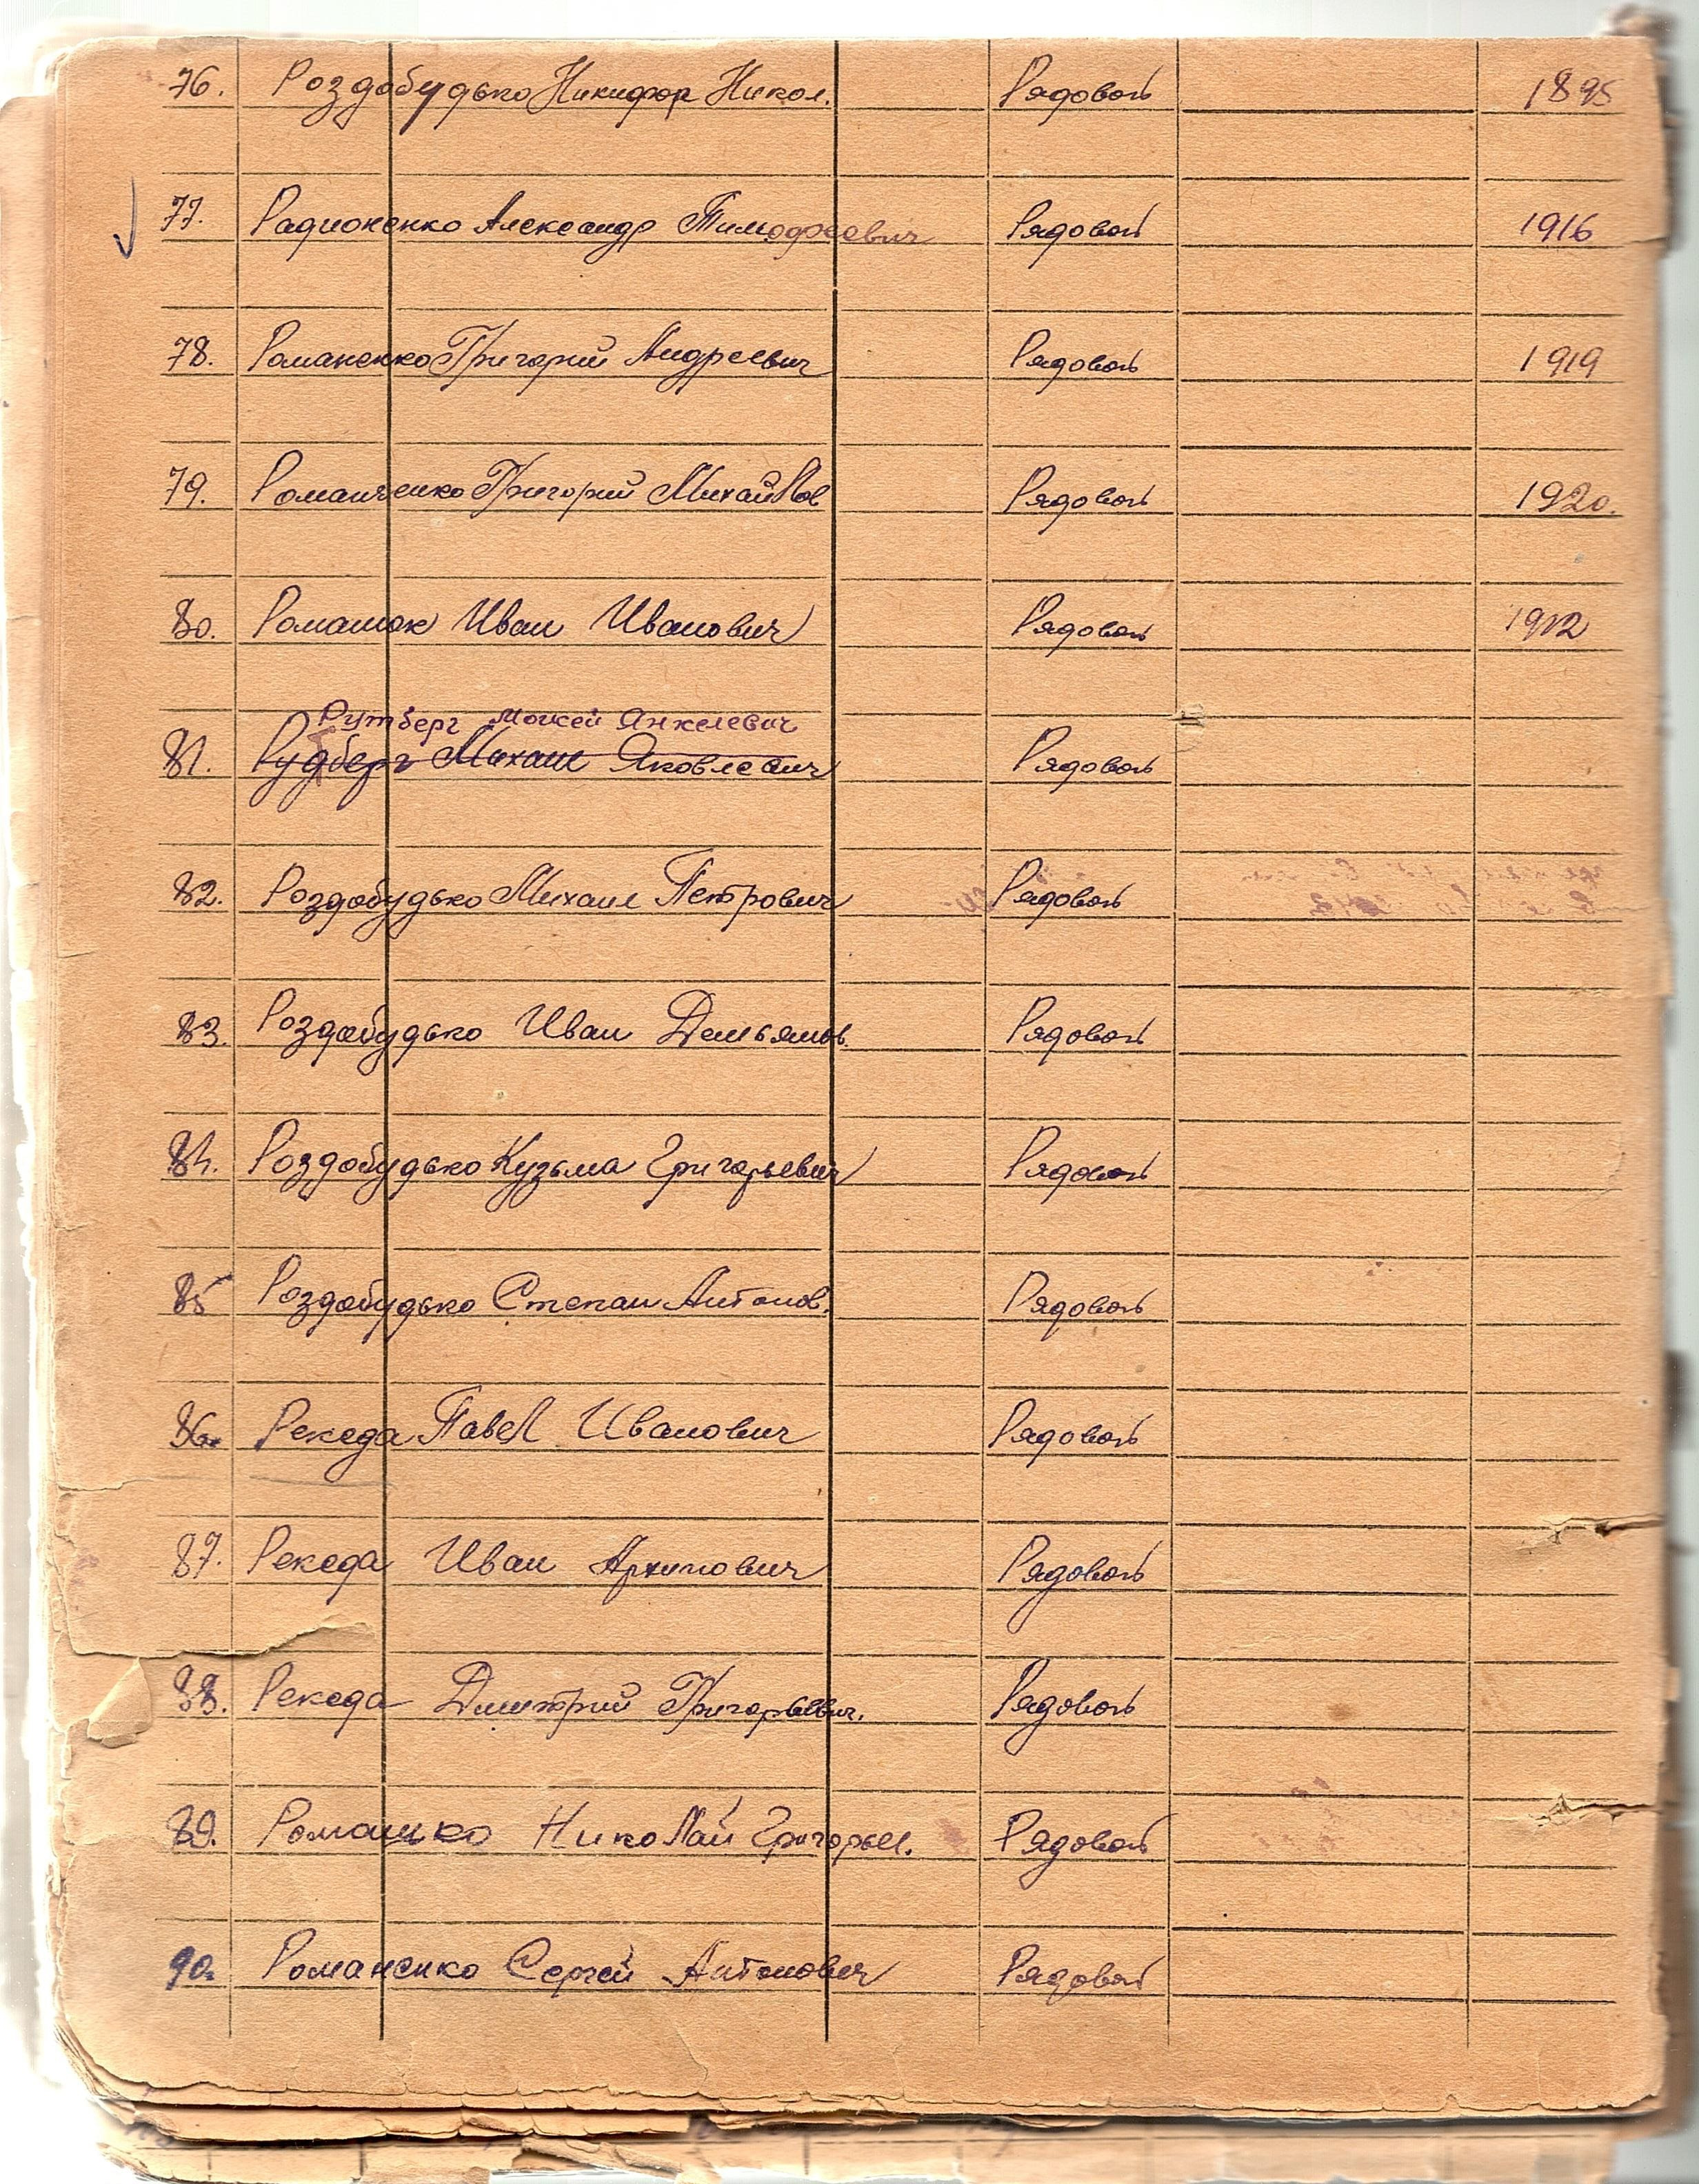 76. Роздобудько Никифор Никол. Рядовой 1895
77. Радионенко Александр Тимофеевич Рядовой 1916
78. Романенко Григорий Андреевич Рядовой 1919
79. Романченко Григорий Михайлов Рядовой 1920.
80. Романюк Иван Иванович Рядовой 1912
Рутберг Моисей Янкелевич
81. Рудберг Михаил Яковлевич Рядовой
82. Роздобудько Михаил Петрович Рядовой
83. Роздобудько Иван Демьянов. Рядовой
84. Роздобудько Кузьма Григорьевич Рядовой
85 Роздобудько Степан Антонов. Рядовой
86. Рекеда Павел Иванович Рядовой
87. Рекеда Иван Архипович Рядовой
88. Рекеда Дмитрий Григорьевич. Рядовой
89. Романько Николай Григорьев. Рядовой
90. Романенко Сергей Антонович Рядовой